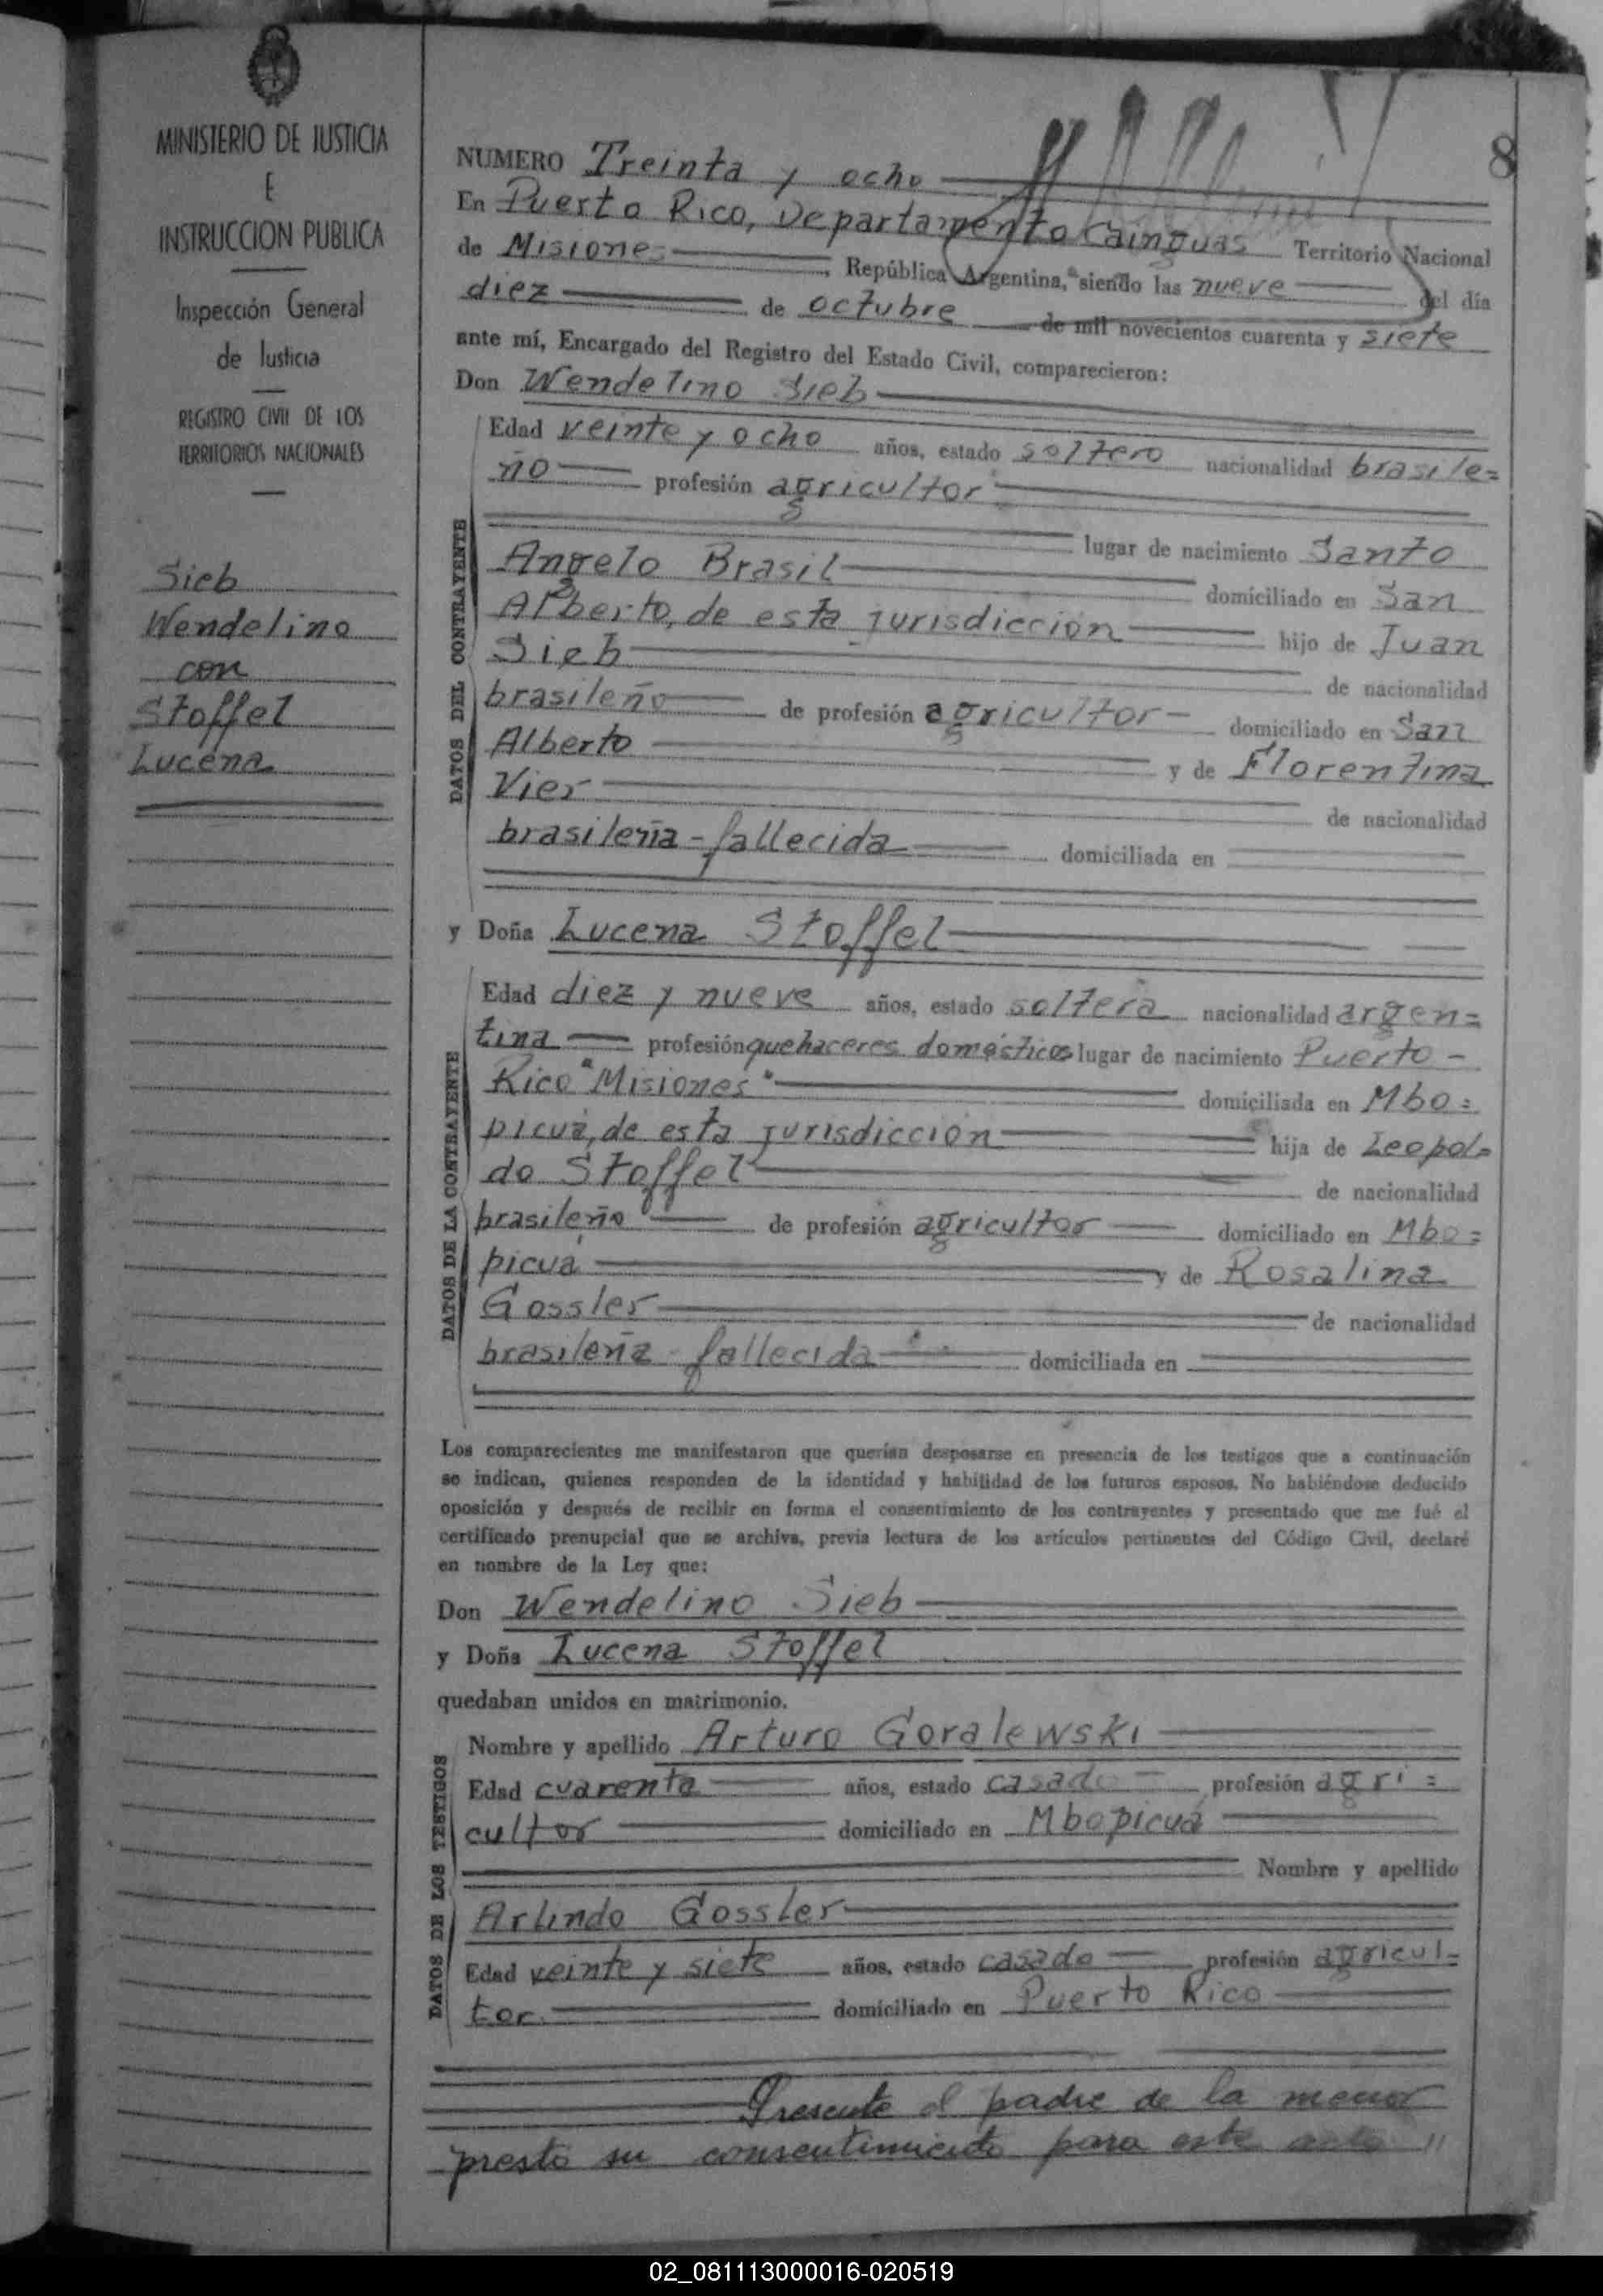 MINISTERIO DE JUSTICIA
E
INSTRUCCION PUBLICA
Inspección General
de Justicia
REGISTRO CIVIL DE LOS
TERRITORIOS NACIONALES
Sieb
Wendelino
con
Stoffel
Lucena
8
NUMERO Treinta y ocho
En Puerto Rico, Departamento Cainguas Territorio Nacional
de Misiones, República Argentina, siendo las nueve del día
diez de octubre de mil novecientos cuarenta y siete
ante mí, Encargado del Registro del Estado Civil, comparecieron:
Don Wendelino Sieb
DATOS DEL CONTRAYENTE
Edad veinte y ocho años, estado soltero nacionalidad brasile=
ño profesión agricultor
lugar de nacimiento Santo
Angelo Brasil domiciliado en San
Alberto, de esta jurisdicción hijo de Juan
Sieb de nacionalidad
brasileño de profesión agricultor domiciliado en San
Alberto y de Florentina
Vier de nacionalidad
brasileña - fallecida domiciliada en
y Doña Lucena Stoffel
DATOS DE LA CONTRAYENTE
Edad diez y nueve años, estado soltera nacionalidad argen=
tina profesión quehaceres domésticos lugar de nacimiento Puerto -
Rico "Misiones" domiciliada en Mbo=
picuá, de esta jurisdicción hija de Leopol=
do Stoffel de nacionalidad
brasileño de profesión agricultor domiciliado en Mbo=
picuá y de Rosalina
Gossler de nacionalidad
brasileña - fallecida domiciliada en
Los comparecientes me manifestaron que querían desposarse en presencia de los testigos que a continuación
se indican, quienes responden de la identidad y habilidad de los futuros esposos. No habiéndose deducido
oposición y después de recibir en forma el consentimiento de los contrayentes y presentado que me fué el
certificado prenupcial que se archiva, previa lectura de los artículos pertinentes del Código Civil, declaré
en nombre de la Ley que:
Don Wendelino Sieb
y Doña Lucena Stoffel
quedaban unidos en matrimonio.
DATOS DE LOS TESTIGOS
Nombre y apellido Arturo Goralewski
Edad cuarenta años, estado casado profesión agri=
cultor domiciliado en Mbopicuá
Nombre y apellido
Arlindo Gossler
Edad veinte y siete años, estado casado profesión agricul=
tor domiciliado en Puerto Rico
Presente el padre de la menor
prestó su consentimiento para este acto
02_081113000016-020519